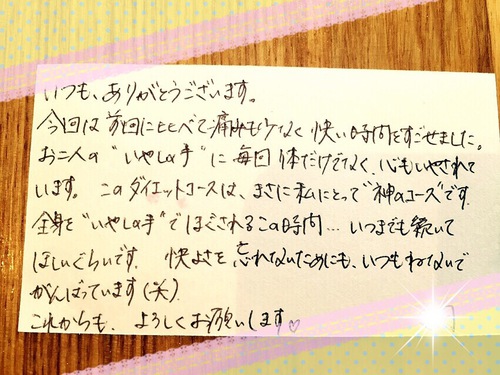 いつも、ありがとうございます。
今回は前回に比べて痛みも少なく快い時間をすごせました。
お二人の"いやしの手"に毎回体だけでなく、心もいやされて
います。このダイエットコースは、まさに私にとって"神のコース"です。
全身を"いやしの手"でほぐされるこの時間…いつまでも続いて
ほしいぐらいです。快よさを忘れないためにも、いつもねないで
がんばっています(笑)
これからも、よろしくお願いします♡